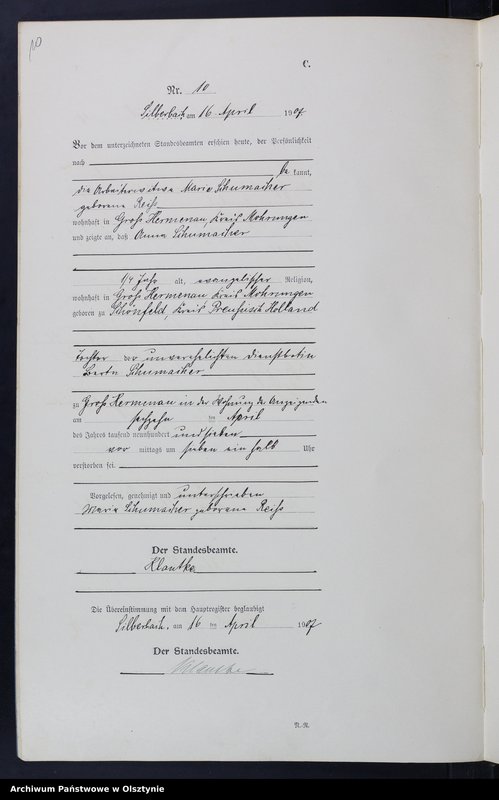 10
C.
Nr. 10
Silberbach am 16 April 1907.
Vor dem unterzeichneten Standesbeamten erschien heute, der Persönlichkeit
nach
be kannt,
die Arbeiterwitwe Marie Schumacher
geborene Reiß
wohnhaft in Groß Hermenau, Kreis Mohrungen
und zeigte an, daß Anna Schumacher
1/4 Jahr alt, evangelischer Religion,
wohnhaft in Groß Hermenau Kreis Mohrungen
geboren zu Schönfeld Kreis Preußisch Holland
Tochter der unverehelichten Dienstbotin
Berta Schumacher
zu Groß Hermenau in der Wohnung der Anzeigenden
am sechzehn ten April
des Jahres tausend neunhundert und sieben
vor mittags um sieben ein halb Uhr
verstorben sei.
Vorgelesen, genehmigt und unterschrieben
Marie Schumacher geborene Reiß
Der Standesbeamte.
Klautke
Die Übereinstimmung mit dem Hauptregister beglaubigt
Silberbach, am 16 ten April 1907
Der Standesbeamte.
Klautke
Archiwum Państwowe w Olsztynie